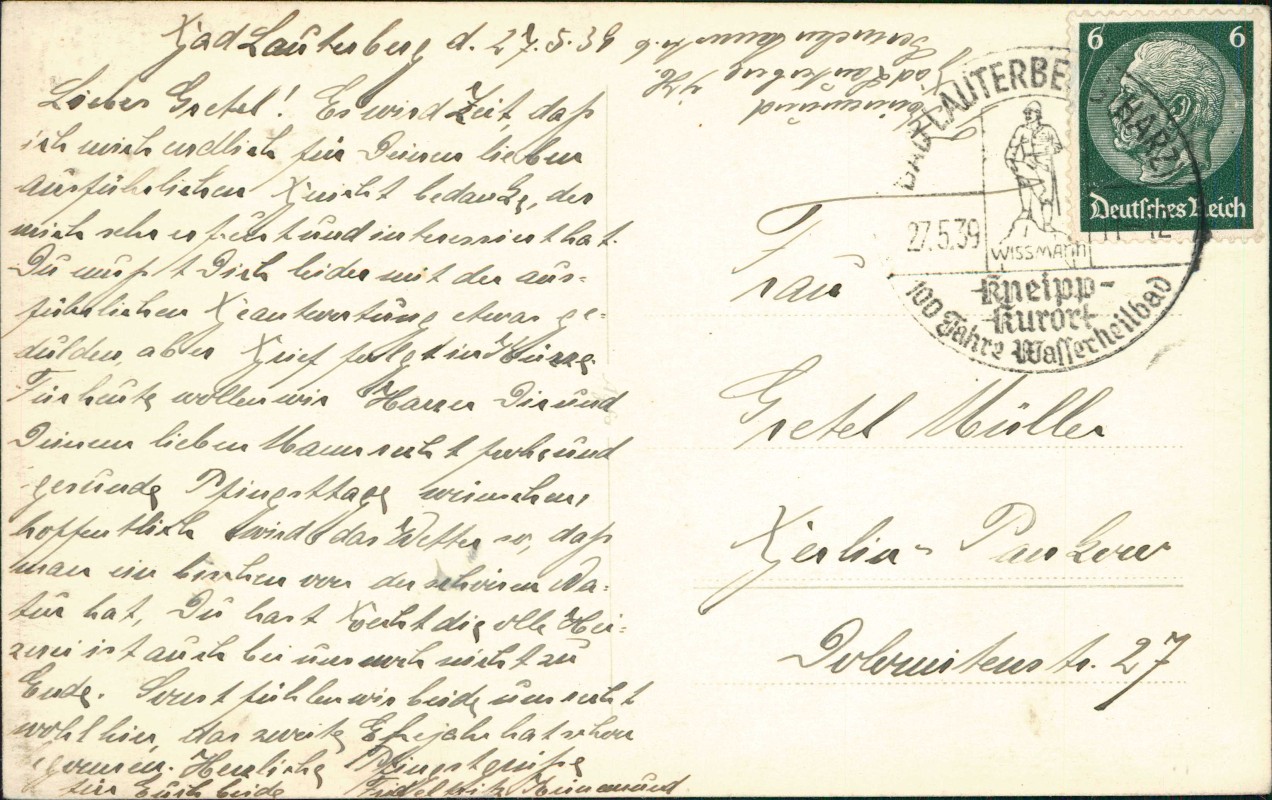 Bad Lauterberg d. 27.5.39
Liebes Gretel! Es wird Zeit, daß
ich mich endlich für Deinen lieben
ausführlichen Bericht bedanke, der
mich sehr erfreut und interessiert hat.
Du mußt Dich leider mit der aus-
führlichen Beantwortung etwas ge-
dulden, aber Brief folgt in Kürze
Für heute wollen wir Dir und
Deinem lieben Mann recht frohe und
gesunde Pfingsttage wünschen,
hoffentlich wird das Wetter so, daß
man ein bischen von der schönen Na-
tur hat, Du hast recht die olle Hei-
zerei ist auch bei uns noch nicht zu
Ende. Sonst fühlen wir beide uns recht
wohl hier, das zweite Ehejahr hat schon
begonnen. Herzliche Pfingstgrüße
für Euch beide
Bad Lauterberg
BAD LAUTERBERG HARZ
27.5.39
WISSMANN
Kneipp-
Kurort
100 Jahre Wasserheilbad
6 6
Deutsches Reich
Frau
Gretel Müller
Berlin-Pankow
Dolomitenstr. 27